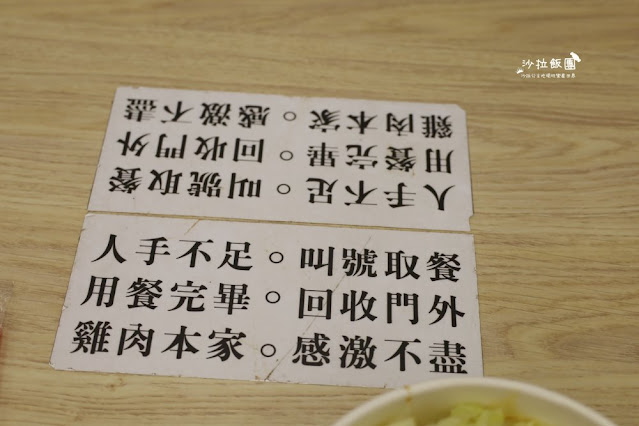 沙拉飯團
人手不足。叫號取餐
用餐完畢。回收門外
雞肉本家。感激不盡
人手不足。叫號取餐
用餐完畢。回收門外
雞肉本家。感激不盡